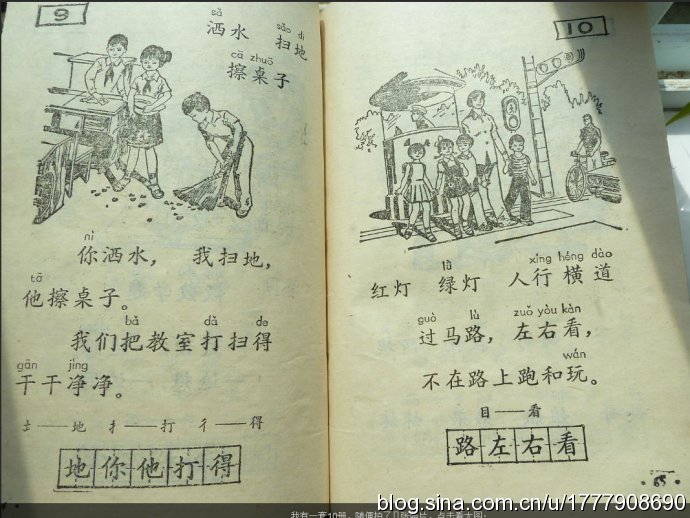 9
sǎ
洒水
sǎo di
扫地
cā zhuō
擦桌子
nǐ
你洒水， 我扫地，
tā
他擦桌子。
bǎ dǎ de
我们把教室打扫得
gān jìng
干干净净。
土——地 扌——打 彳——得
地你他打得
10
lǜ xíng héng dào
红灯 绿灯 人行横道
guò lù zuǒ yòu kàn
过马路，左右看，
wán
不在路上跑和玩。
目——看
路左右看
65
blog.sina.com.cn/u/1777908690